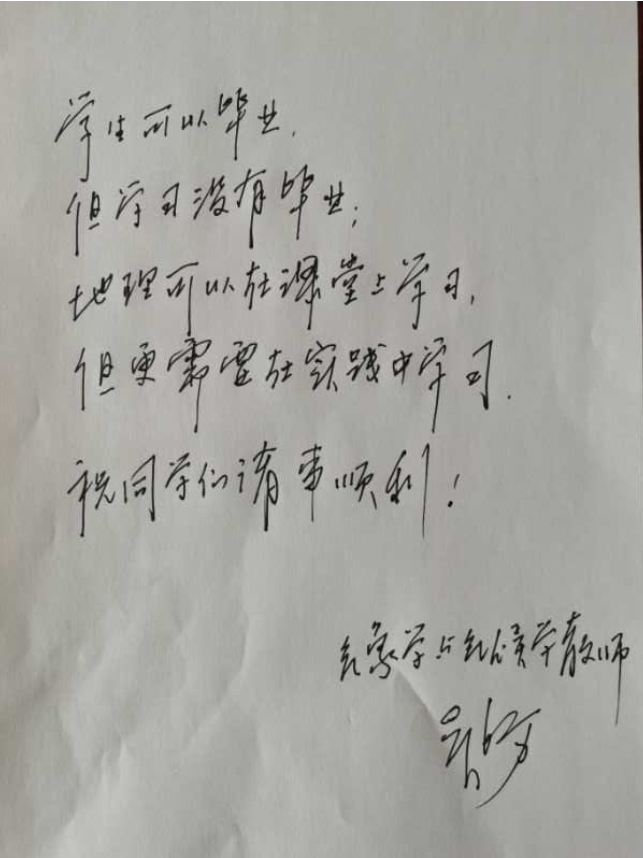 学生可以毕业,
但学习没有毕业;
地理可以在课堂上学习,
但更需要在实践中学习.
祝同学们诸事顺利!
气象学与气候学教师